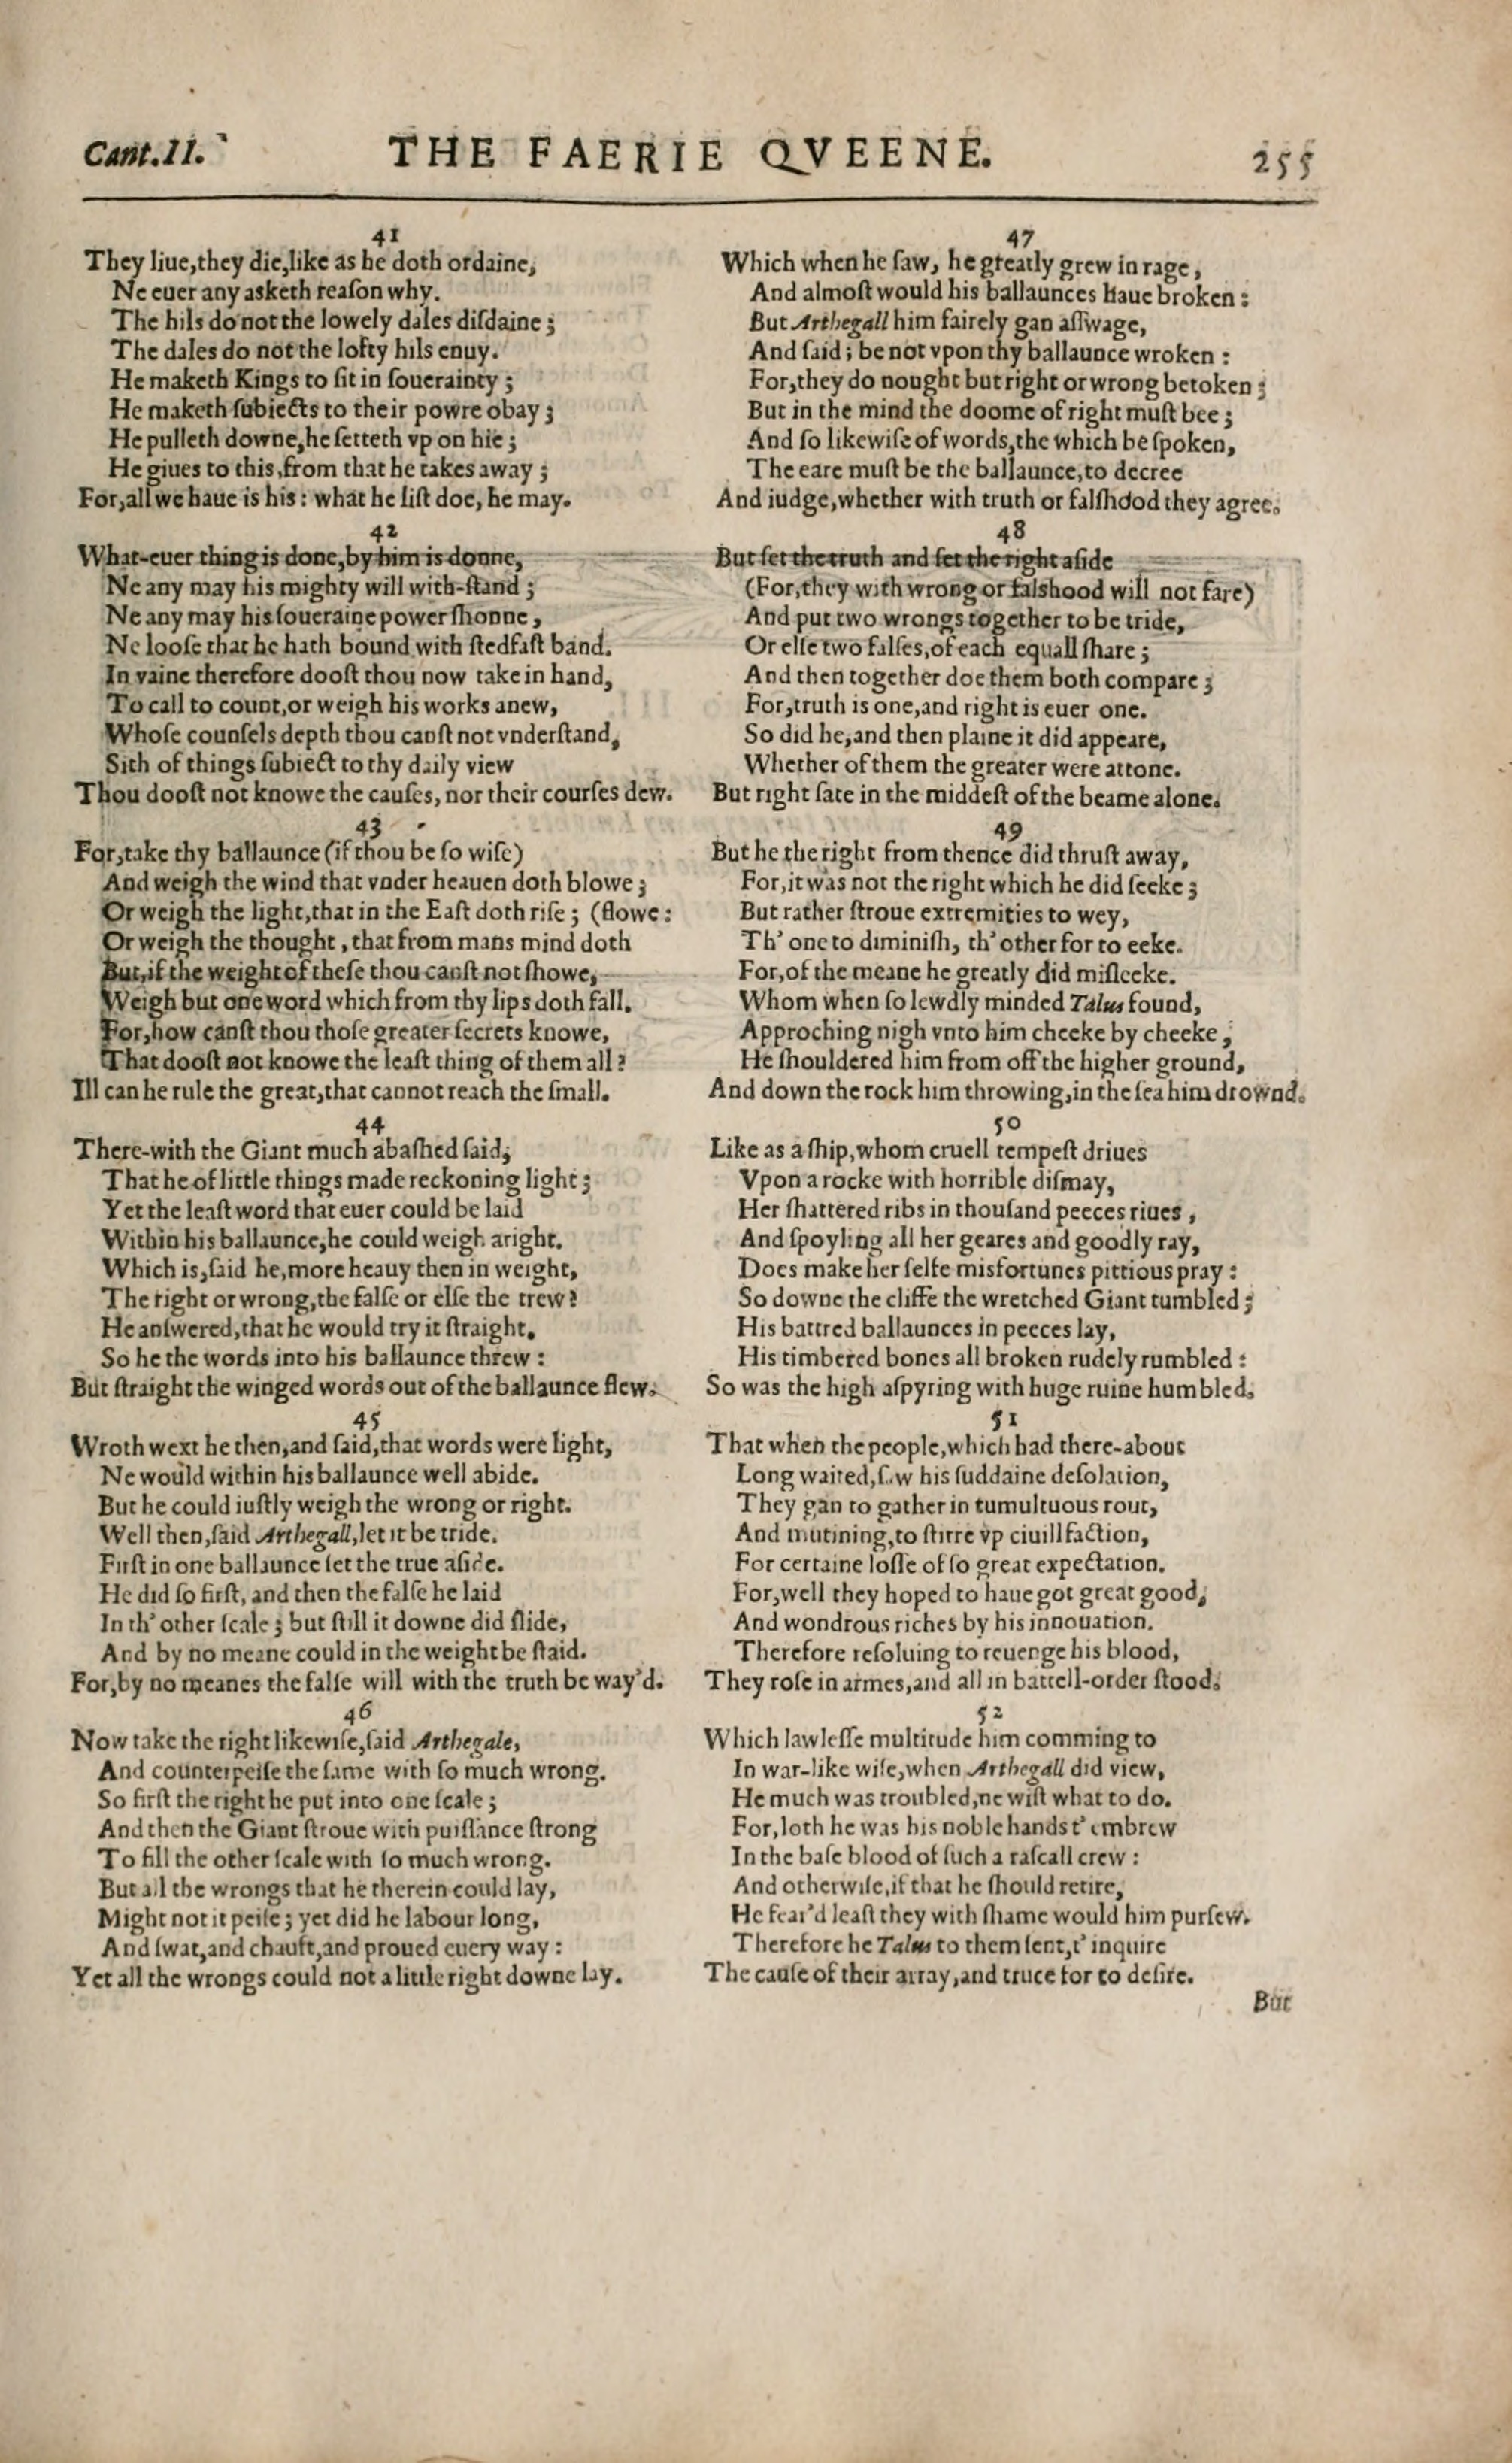 Cant.II.
THE FAERIE QVEENE.
255
41
They liue,they die,like as he doth ordaine,
Ne euer any asketh reaſon why.
The hils do not the lowely dales diſdaine ;
The dales do not the lofty hils enuy.
He maketh Kings to ſit in ſouerainty ;
He maketh ſubiects to their powre obay ;
He pulleth downe,he ſetteth vp on hie ;
He giues to this,from that he takes away ;
For,all we haue is his : what he liſt doe, he may.
42
What-euer thing is done,by him is donne,
Ne any may his mighty will with-ſtand ;
Ne any may his ſoueraine power ſhonne ,
Ne looſe that he hath bound with ſtedfaſt band.
In vaine therefore dooſt thou now take in hand,
To call to count,or weigh his works anew,
Whoſe counſels depth thou canſt not vnderſtand,
Sith of things ſubiect to thy daily view
Thou dooſt not knowe the cauſes, nor their courſes dew.
43
For,take thy ballaunce (if thou be ſo wiſe)
And weigh the wind that vnder heauen doth blowe ;
Or weigh the light,that in the Eaſt doth riſe ; (flowe :
Or weigh the thought , that from mans mind doth
But,if the weight of theſe thou canſt not ſhowe,
Weigh but one word which from thy lips doth fall.
For,how canſt thou thoſe greater ſecrets knowe,
That dooſt not knowe the leaſt thing of them all ?
Ill can he rule the great,that cannot reach the ſmall.
44
There-with the Giant much abaſhed ſaid,
That he of little things made reckoning light ;
Yet the leaſt word that euer could be laid
Within his ballaunce,he could weigh aright.
Which is,ſaid he,more heauy then in weight,
The right or wrong,the falſe or elſe the trew ?
He anſwered,that he would try it ſtraight.
So he the words into his ballaunce threw :
But ſtraight the winged words out of the ballaunce flew.
45
Wroth wext he then,and ſaid,that words were light,
Ne would within his ballaunce well abide.
But he could iuſtly weigh the wrong or right.
Well then,ſaid Arthegall,let it be tride.
Firſt in one ballaunce ſet the true aſide.
He did ſo firſt, and then the falſe he laid
In th' other ſcale ; but ſtill it downe did ſlide,
And by no meane could in the weight be ſtaid.
For,by no meanes the falſe will with the truth be way'd.
46
Now take the right likewiſe,ſaid Arthegale,
And counterpeiſe the ſame with ſo much wrong.
So firſt the right he put into one ſcale ;
And then the Giant ſtroue with puiſſance ſtrong
To fill the other ſcale with ſo much wrong.
But all the wrongs that he therein could lay,
Might not it peiſe ; yet did he labour long,
And ſwat,and chauft,and proued euery way :
Yet all the wrongs could not a little right downe lay.
47
Which when he ſaw, he greatly grew in rage ,
And almoſt would his ballaunces haue broken :
But Arthegall him fairely gan aſſwage,
And ſaid ; be not vpon thy ballaunce wroken :
For,they do nought but right or wrong betoken ;
But in the mind the doome of right muſt bee ;
And ſo likewiſe of words,the which be ſpoken,
The eare muſt be the ballaunce,to decree
And iudge,whether with truth or falſhood they agree.
48
But ſet the truth and ſet the right aſide
(For,they with wrong or falshood will not fare)
And put two wrongs together to be tride,
Or elſe two falſes,of each equall ſhare ;
And then together doe them both compare ;
For,truth is one,and right is euer one.
So did he,and then plaine it did appeare,
Whether of them the greater were attone.
But right ſate in the middeſt of the beame alone.
49
But he the right from thence did thruſt away,
For,it was not the right which he did ſeeke ;
But rather ſtroue extremities to wey,
Th' one to diminiſh, th' other for to eeke.
For,of the meane he greatly did miſleeke.
Whom when ſo lewdly minded Talus found,
Approching nigh vnto him cheeke by cheeke ,
He ſhouldered him from off the higher ground,
And down the rock him throwing,in the ſea him drownd.
50
Like as a ſhip,whom cruell tempeſt driues
Vpon a rocke with horrible diſmay,
Her ſhattered ribs in thouſand peeces riues ,
And ſpoyling all her geares and goodly ray,
Does make her ſelfe misfortunes pittious pray :
So downe the cliffe the wretched Giant tumbled ;
His battred ballaunces in peeces lay,
His timbered bones all broken rudely rumbled :
So was the high aſpyring with huge ruine humbled.
51
That when the people,which had there-about
Long waited,ſaw his ſuddaine deſolation,
They gan to gather in tumultuous rout,
And mutining,to ſtirre vp ciuill faction,
For certaine loſſe of ſo great expectation.
For,well they hoped to haue got great good,
And wondrous riches by his innouation.
Therefore reſoluing to reuenge his blood,
They roſe in armes,and all in battell-order ſtood.
52
Which lawleſſe multitude him comming to
In war-like wiſe,when Arthegall did view,
He much was troubled,ne wiſt what to do.
For,loth he was his noble hands t' embrew
In the baſe blood of ſuch a raſcall crew :
And otherwiſe,if that he ſhould retire,
He fear'd leaſt they with ſhame would him purſew.
Therefore he Talus to them ſent,t' inquire
The cauſe of their array,and truce for to deſire.
But